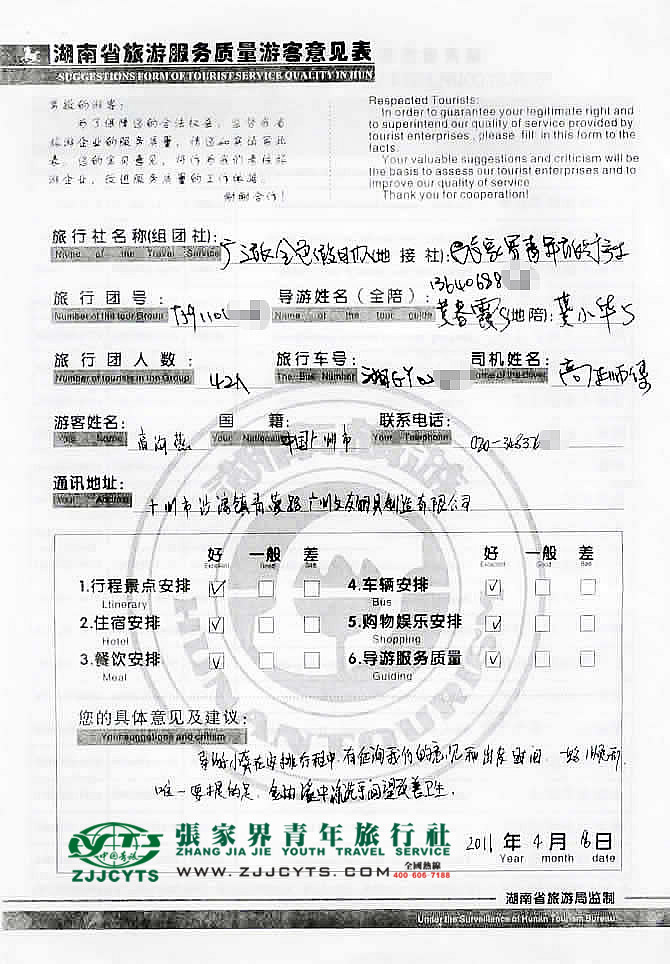 湖南省旅游服务质量游客意见表
SUGGESTIONS FORM OF TOURIST SERVICE QUALITY IN HUN
尊敬的游客:
为了保障您的合法权益,监督旅
游企业的服务质量,请您如实填写此
表。您的宝贵意见,将作为我们考核旅
游企业、改进服务质量的工作依据。
谢谢合作!
Respected Tourists:
In order to guarantee your legitimate right and
to superintend our quality of service provided by
tourist enterprises, please fill in this form to the
facts.
Your valuable suggestions and criticism will be
the basis to assess our tourist enterprises and to
improve our quality of service
Thank you for cooperation!
旅行社名称(组团社): (地接社):
Name of the Travel Service
13640688
旅行团号: 导游姓名(全陪): (地陪): 莫小华
Number of the tour Group Name of the tour guide
旅行团人数: 42人 旅行车号: 湘G 司机姓名:
Number of tourists in the Group The Bus Number Name of the driver
游客姓名: 国籍: 中国广州市 联系电话: 020-34836
Your Name Your Nationality Your Telephone
通讯地址: 广州市 有限公司
Your Address
好 一般 差 好 一般 差
Excellent Good Bad Excellent Good Bad
1.行程景点安排 ✓ 4.车辆安排 ✓
Ltinerary Bus
2.住宿安排 ✓ 5.购物娱乐安排 ✓
Hotel Shopping
3.餐饮安排 ✓ 6.导游服务质量 ✓
Meal Guiding
HUNAN TOURISM
您的具体意见及建议:
Your suggestions and critism
导游小莫在安排行程中,有征询我们的意见和出发时间,一路顺利,
唯一要提的是, 洗手间望改善卫生。
2011 年 4 月 18 日
Year month date
中国青旅
ZJJCYTS
張家界青年旅行社
ZHANG JIA JIE YOUTH TRAVEL SERVICE
WWW.ZJJCYTS.COM
全國熱線
400 606 7188
湖南省旅游局监制
Under the Surveillance of Hunan Tourism Bureau